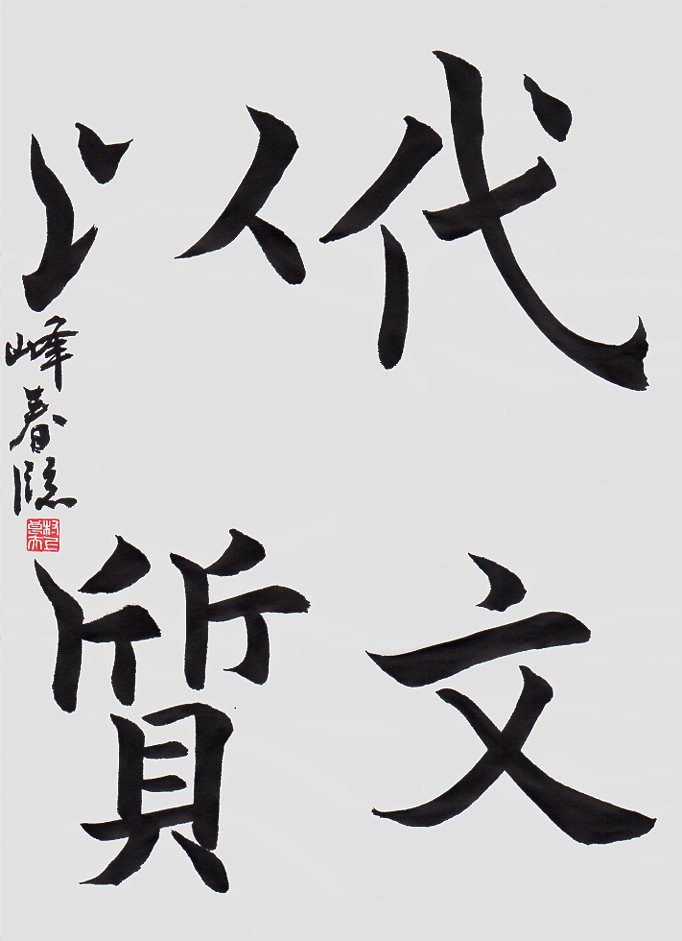 代文
以質
峰春臨